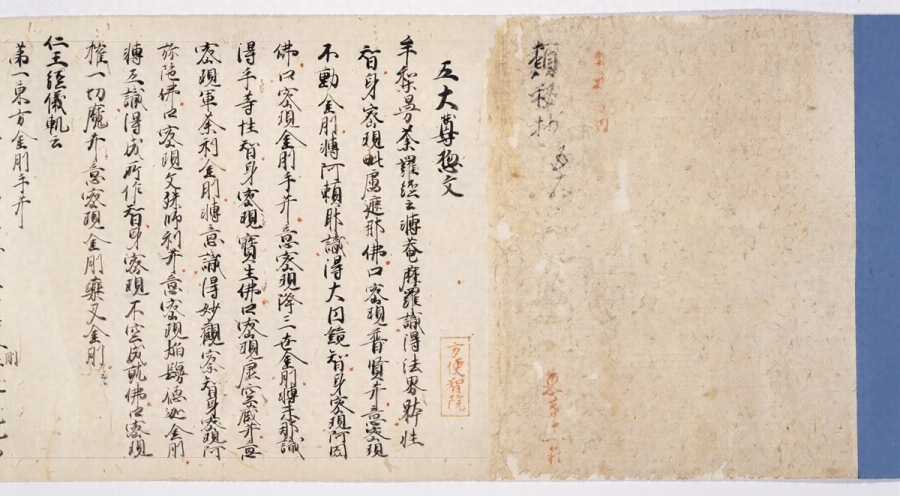 類秘抄
五大尊惣文
牟梨曼荼羅経云轉菴摩羅識得法界躰性
智身密現毗盧遮那佛口密現普賢井意密現
不動金剛轉阿頼耶識得大円鏡智身密現阿閦
佛口密現金剛手井意密現降三世金剛轉末那識
得平等性智身密現寶生佛口密現虚空蔵井意
密現軍荼利金剛轉意識得妙觀察智身密現阿
弥陀佛口密現文殊師利井意密現焔鬘德迦金剛
轉五識得成所作智身密現不空成就佛口密現
摧一切魔井意密現金剛藥叉金剛
仁王経儀軌云
第一東方金剛手井
方便智院